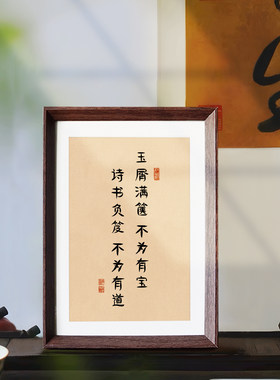 玉屑满箧 不为有宝
诗书负笈 不为有道